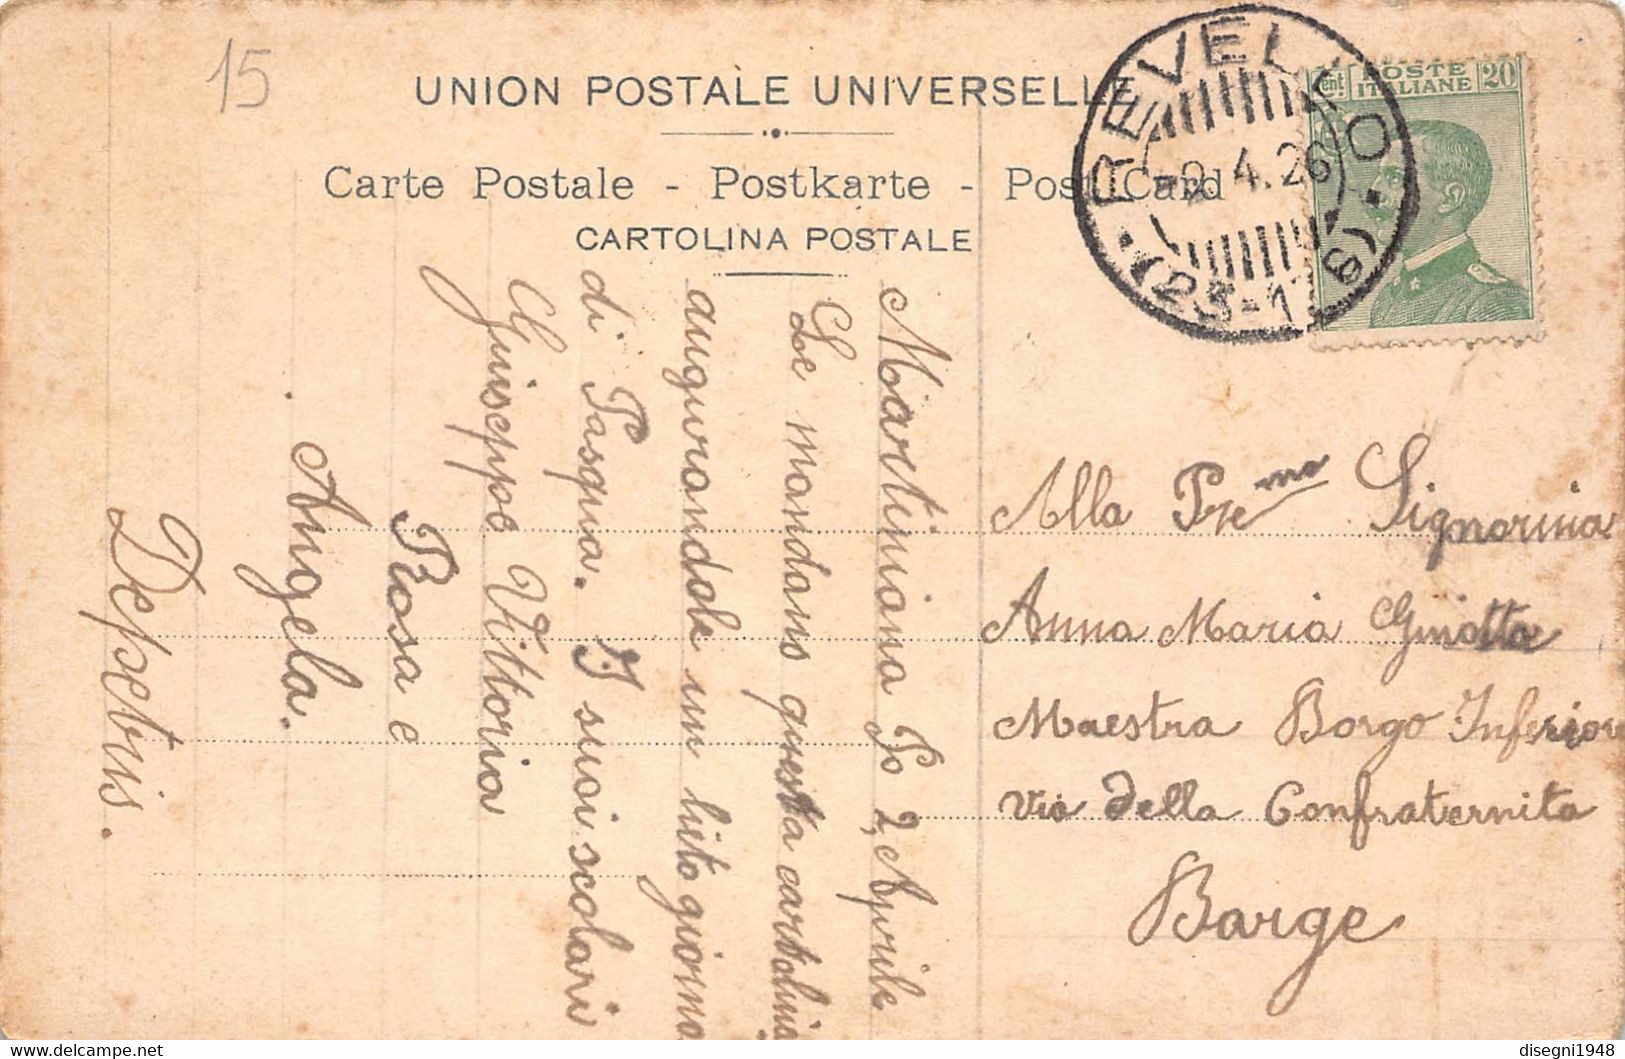 15
UNION POSTALE UNIVERSELLE
Carte Postale - Postkarte - Post Card
CARTOLINA POSTALE
REVELLO
2.4.26
(23-1 9)
Cent. POSTE 20
ITALIANE
Martiniana Po 2, Aprile
Le mandano questa cartolina
augurandole un lieto giorno
di Pasqua. I suoi scolari
Giuseppe Vittoria
Rosa e
Angela.
Depetris.
Alla Pre ma Signorina
Anna Maria Ginotta
Maestra Borgo Inferiore
Via della Confraternita
Barge
disegni1948